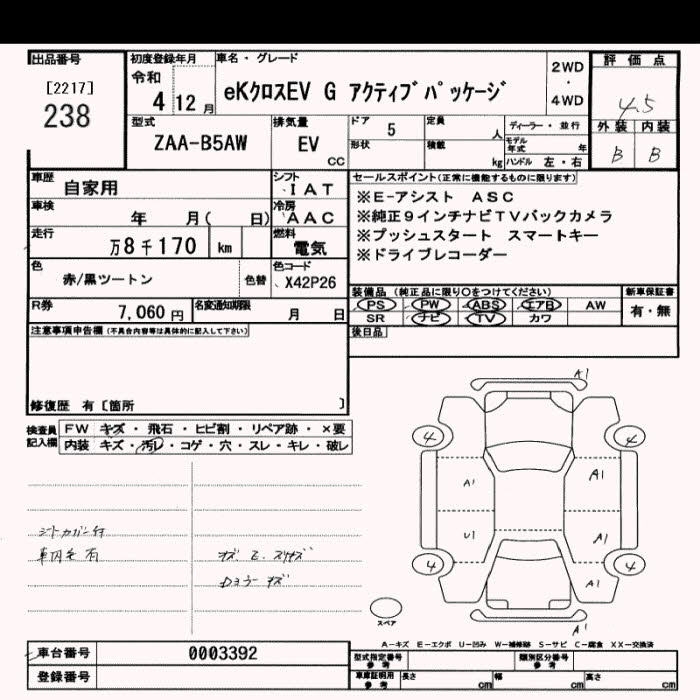 出品番号
[2217]
238
初度登録年月
令和
4 12月
車名・グレード
eKクロスEV G アクティブパッケージ
2WD
・
4WD
評価点
4.5
外装 内装
B B
型式
ZAA-B5AW
排気量
EV
CC
ドア 5
定員 人
形状
積載 kg
ディーラー・並行
モデル年式 年
ハンドル 左・右
車歴 自家用
シフト
IAT
車検 年 月( 日)
冷房
AAC
走行 万8千170 km
燃料
電気
色 赤/黒ツートン 色替
色コード
X42P26
R券 7,060円
名変通知期限 月 日
セールスポイント(正常に機能するものに限ります)
※E-アシスト ASC
※純正9インチナビTVバックカメラ
※プッシュスタート スマートキー
※ドライブレコーダー
装備品 (純正品に限り○をつけてください)
新車保証書
PS PW ABS エアB AW
SR ナビ TV カワ
有・無
後日品
注意事項申告欄(不具合内容等は具体的に記入して下さい)
修復歴 有〔箇所 〕
検査員記入欄
FW キズ・飛石・ヒビ割・リペア跡・×要
内装 キズ・汚レ・コゲ・穴・スレ・キレ・破レ
車内キ有
A1
4 4
A1 A1
U1 A1
4 4
A1
A1
スペア
A-キズ E-エクボ U-凹み W-補修跡 S-サビ C-腐食 XX-交換済
車台番号 0003392
登録番号
型式指定番号参考
類別区分番号参考
車庫証明用参考
長さ cm
幅 cm
高さ cm